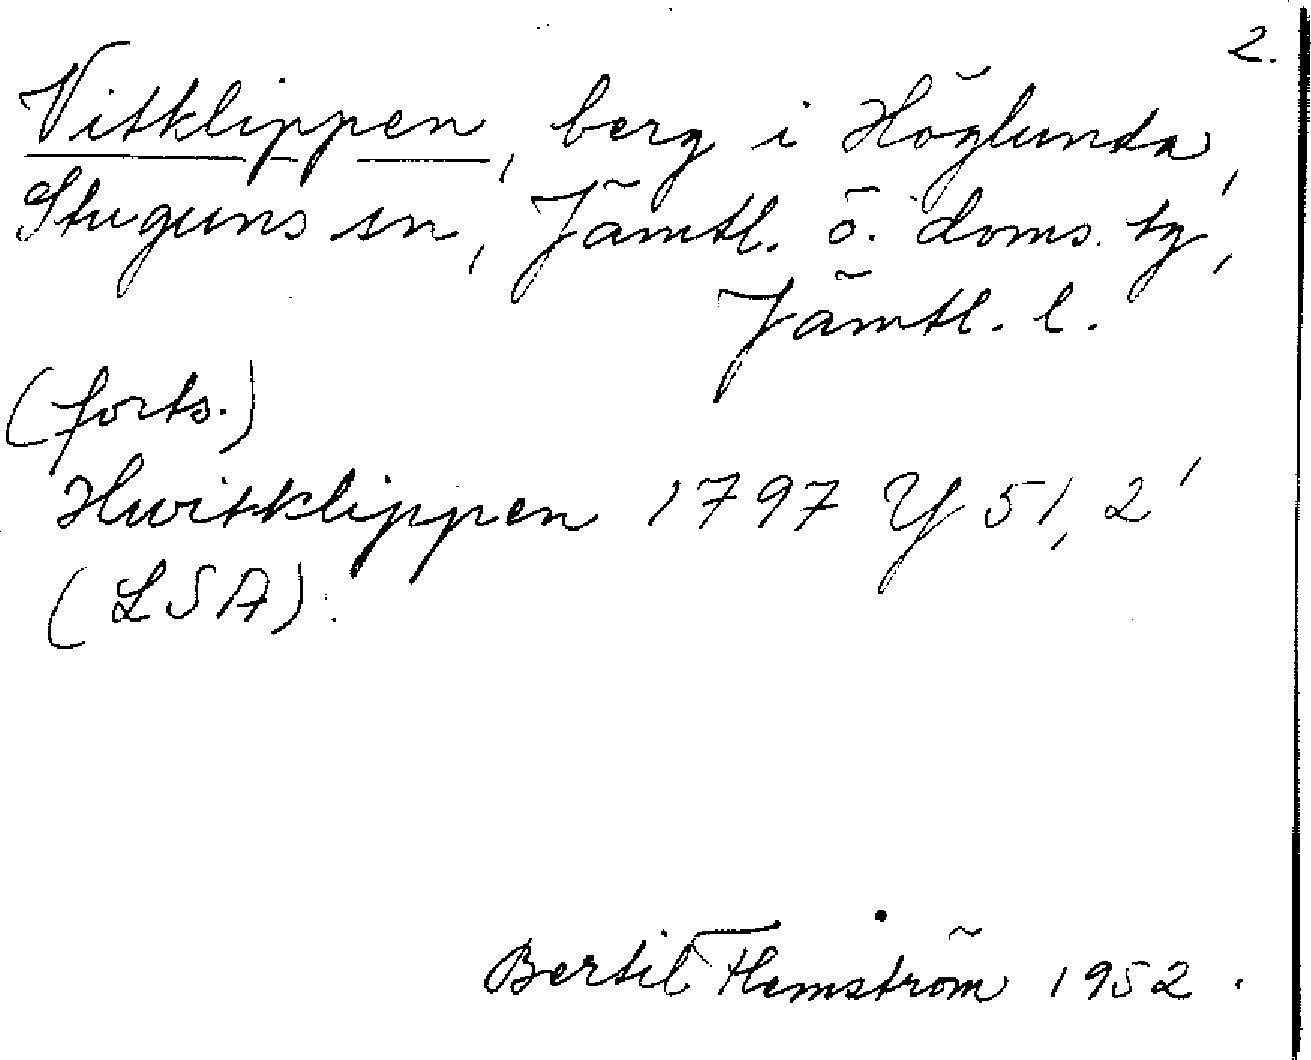 2.
Vitklippen, berg i Höglunda,
Stuguns sn, Jämtl. ö. doms. tg,
Jämtl. l.
(forts.)
Hwitklippen 1797 Y 51, 2'
(LSA).
Bertil Flemström 1952.